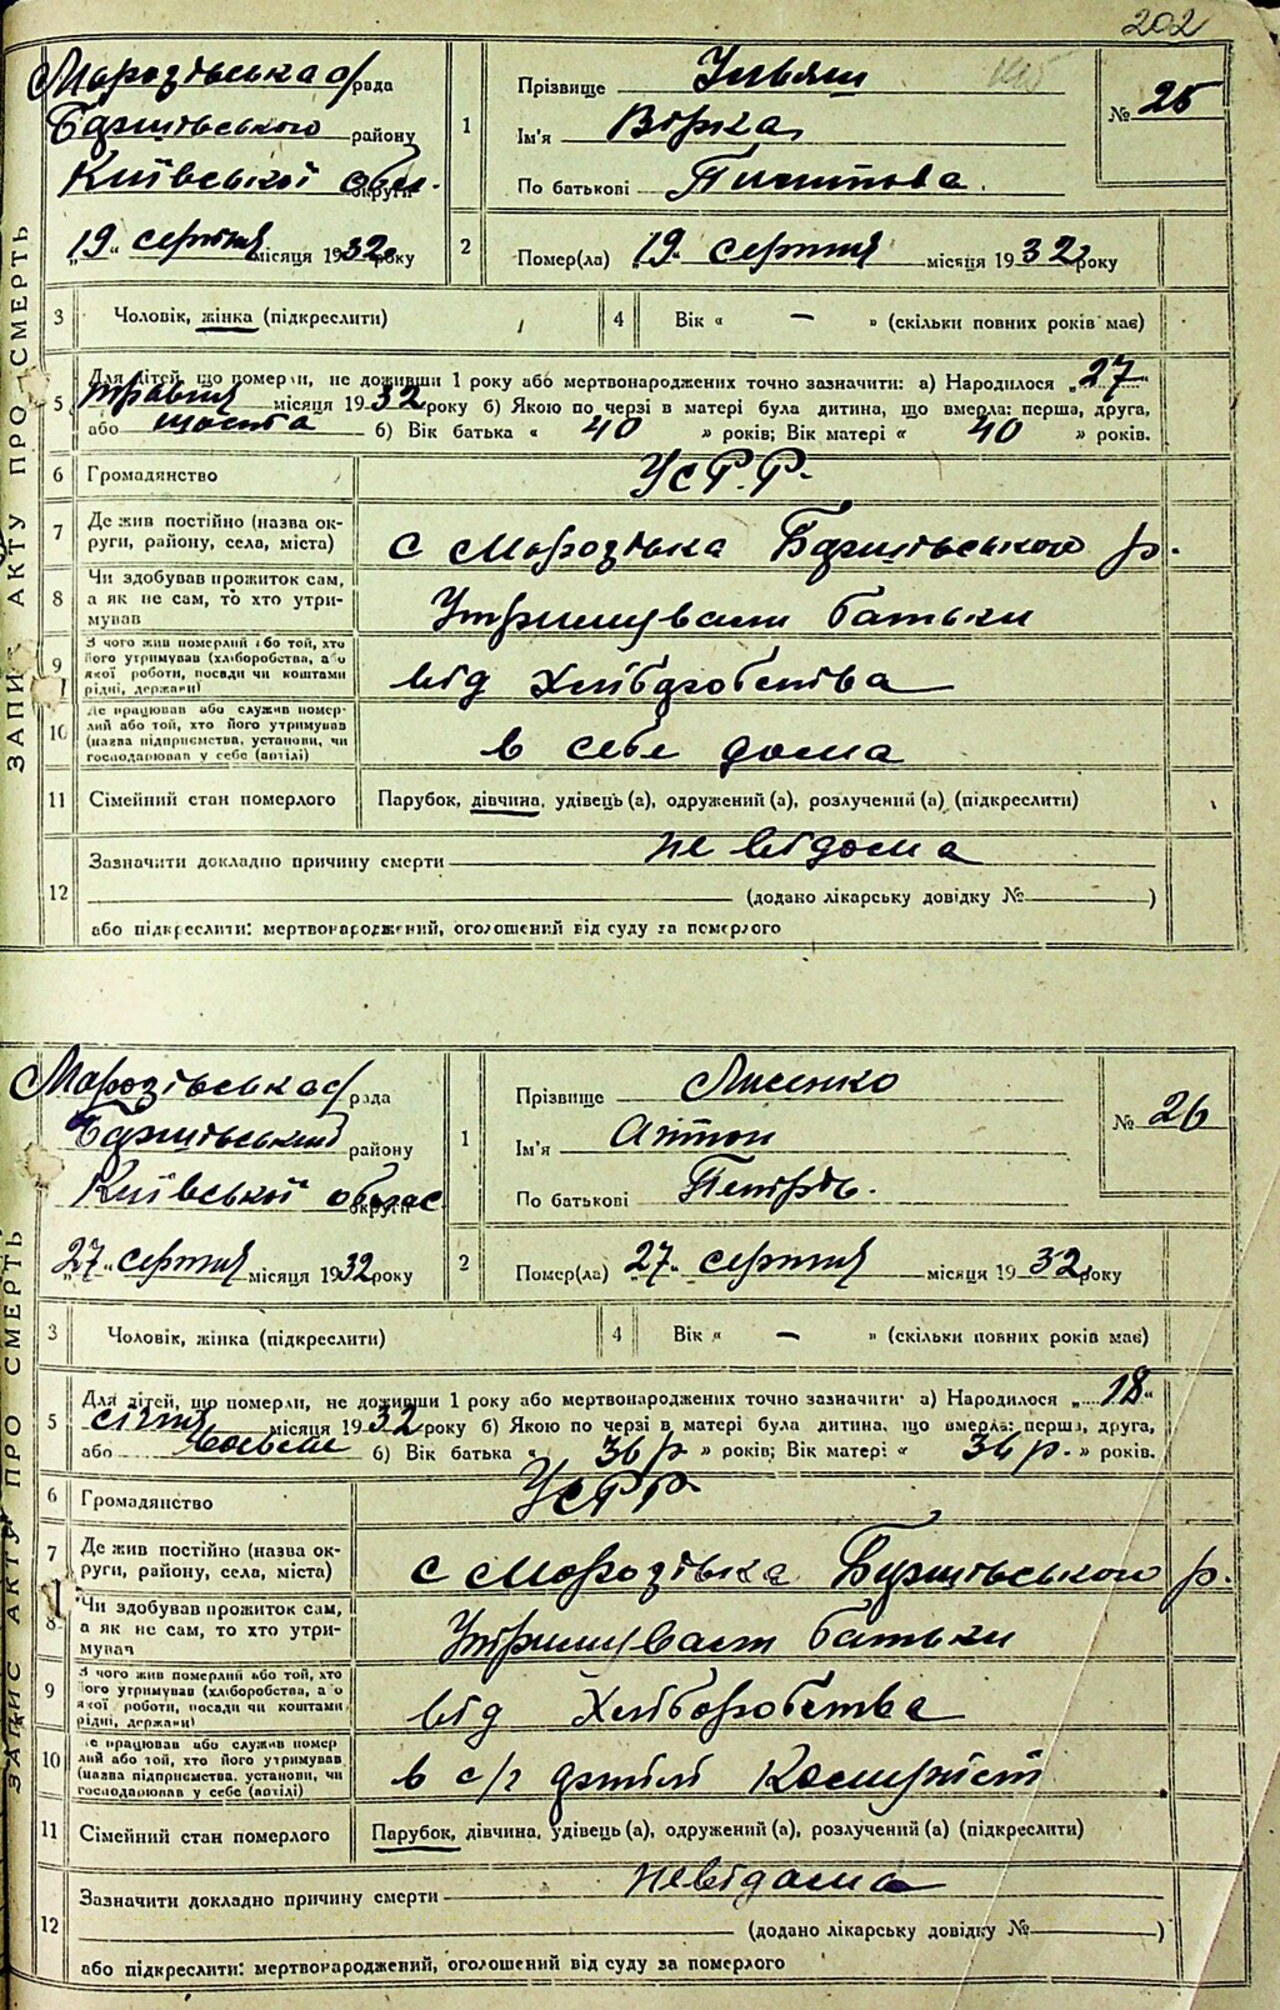 202
ЗАПИС АКТУ ПРО СМЕРТЬ
Морозівська с/рада
Баришівського району
Київської обл. округи
„19“ серпня місяця 1932 року
1
Прізвище Ильяш
Ім'я Вірка
По батькові
№ 25
2
Помер(ла) „19“ серпня місяця 1932 року
3 Чоловік, жінка (підкреслити)
4 Вік « — » (скільки повних років має)
5 Для дітей, що померли, не доживши 1 року або мертвонароджених точно зазначити: а) Народилося „27“
травня місяця 1932 року б) Якою по черзі в матері була дитина, що вмерла: перша, друга,
або шоста б) Вік батька « 40 » років; Вік матері « 40 » років.
6 Громадянство УСРР.
7 Де жив постійно (назва округи, району, села, міста) с Морозівка Баришівського р.
8 Чи здобував прожиток сам, а як не сам, то хто утримував Утримували батьки
9 З чого жив померлий або той, хто його утримував (хліборобства, або якої роботи, посади чи коштами рідні, держави) від Хліборобства
10 Де працював або служив померлий або той, хто його утримував (назва підприємства, установи, чи господарював у себе (артілі) в себе дома
11 Сімейний стан померлого Парубок, дівчина, удівець (а), одружений (а), розлучений (а) (підкреслити)
12 Зазначити докладно причину смерти не відома
(додано лікарську довідку № )
або підкреслити: мертвонароджений, оголошений від суду за померлого
ЗАПИС АКТУ ПРО СМЕРТЬ
Морозівська с/рада
Баришівський району
Київської облас округи
„27“ серпня місяця 1932 року
1
Прізвище Лисенко
Ім'я Антон
По батькові Петрів.
№ 26
2
Помер(ла) „27“ серпня місяця 1932 року
3 Чоловік, жінка (підкреслити)
4 Вік « — » (скільки повних років має)
5 Для дітей, що померли, не доживши 1 року або мертвонароджених точно зазначити: а) Народилося „18“
січня місяця 1932 року б) Якою по черзі в матері була дитина, що вмерла: перша, друга,
або б) Вік батька « 36 р » років; Вік матері « 36 р. » років.
6 Громадянство УСРР
7 Де жив постійно (назва округи, району, села, міста) с Морозівка Баришівського р.
8 Чи здобував прожиток сам, а як не сам, то хто утримував Утримували батьки
9 З чого жив померлий або той, хто його утримував (хліборобства, або якої роботи, посади чи коштами рідні, держави) від Хліборобства
10 Де працював або служив померлий або той, хто його утримував (назва підприємства, установи, чи господарював у себе (артілі) в с/г артілі Комуніст
11 Сімейний стан померлого Парубок, дівчина, удівець (а), одружений (а), розлучений (а) (підкреслити)
12 Зазначити докладно причину смерти невідома
(додано лікарську довідку № )
або підкреслити: мертвонароджений, оголошений від суду за померлого